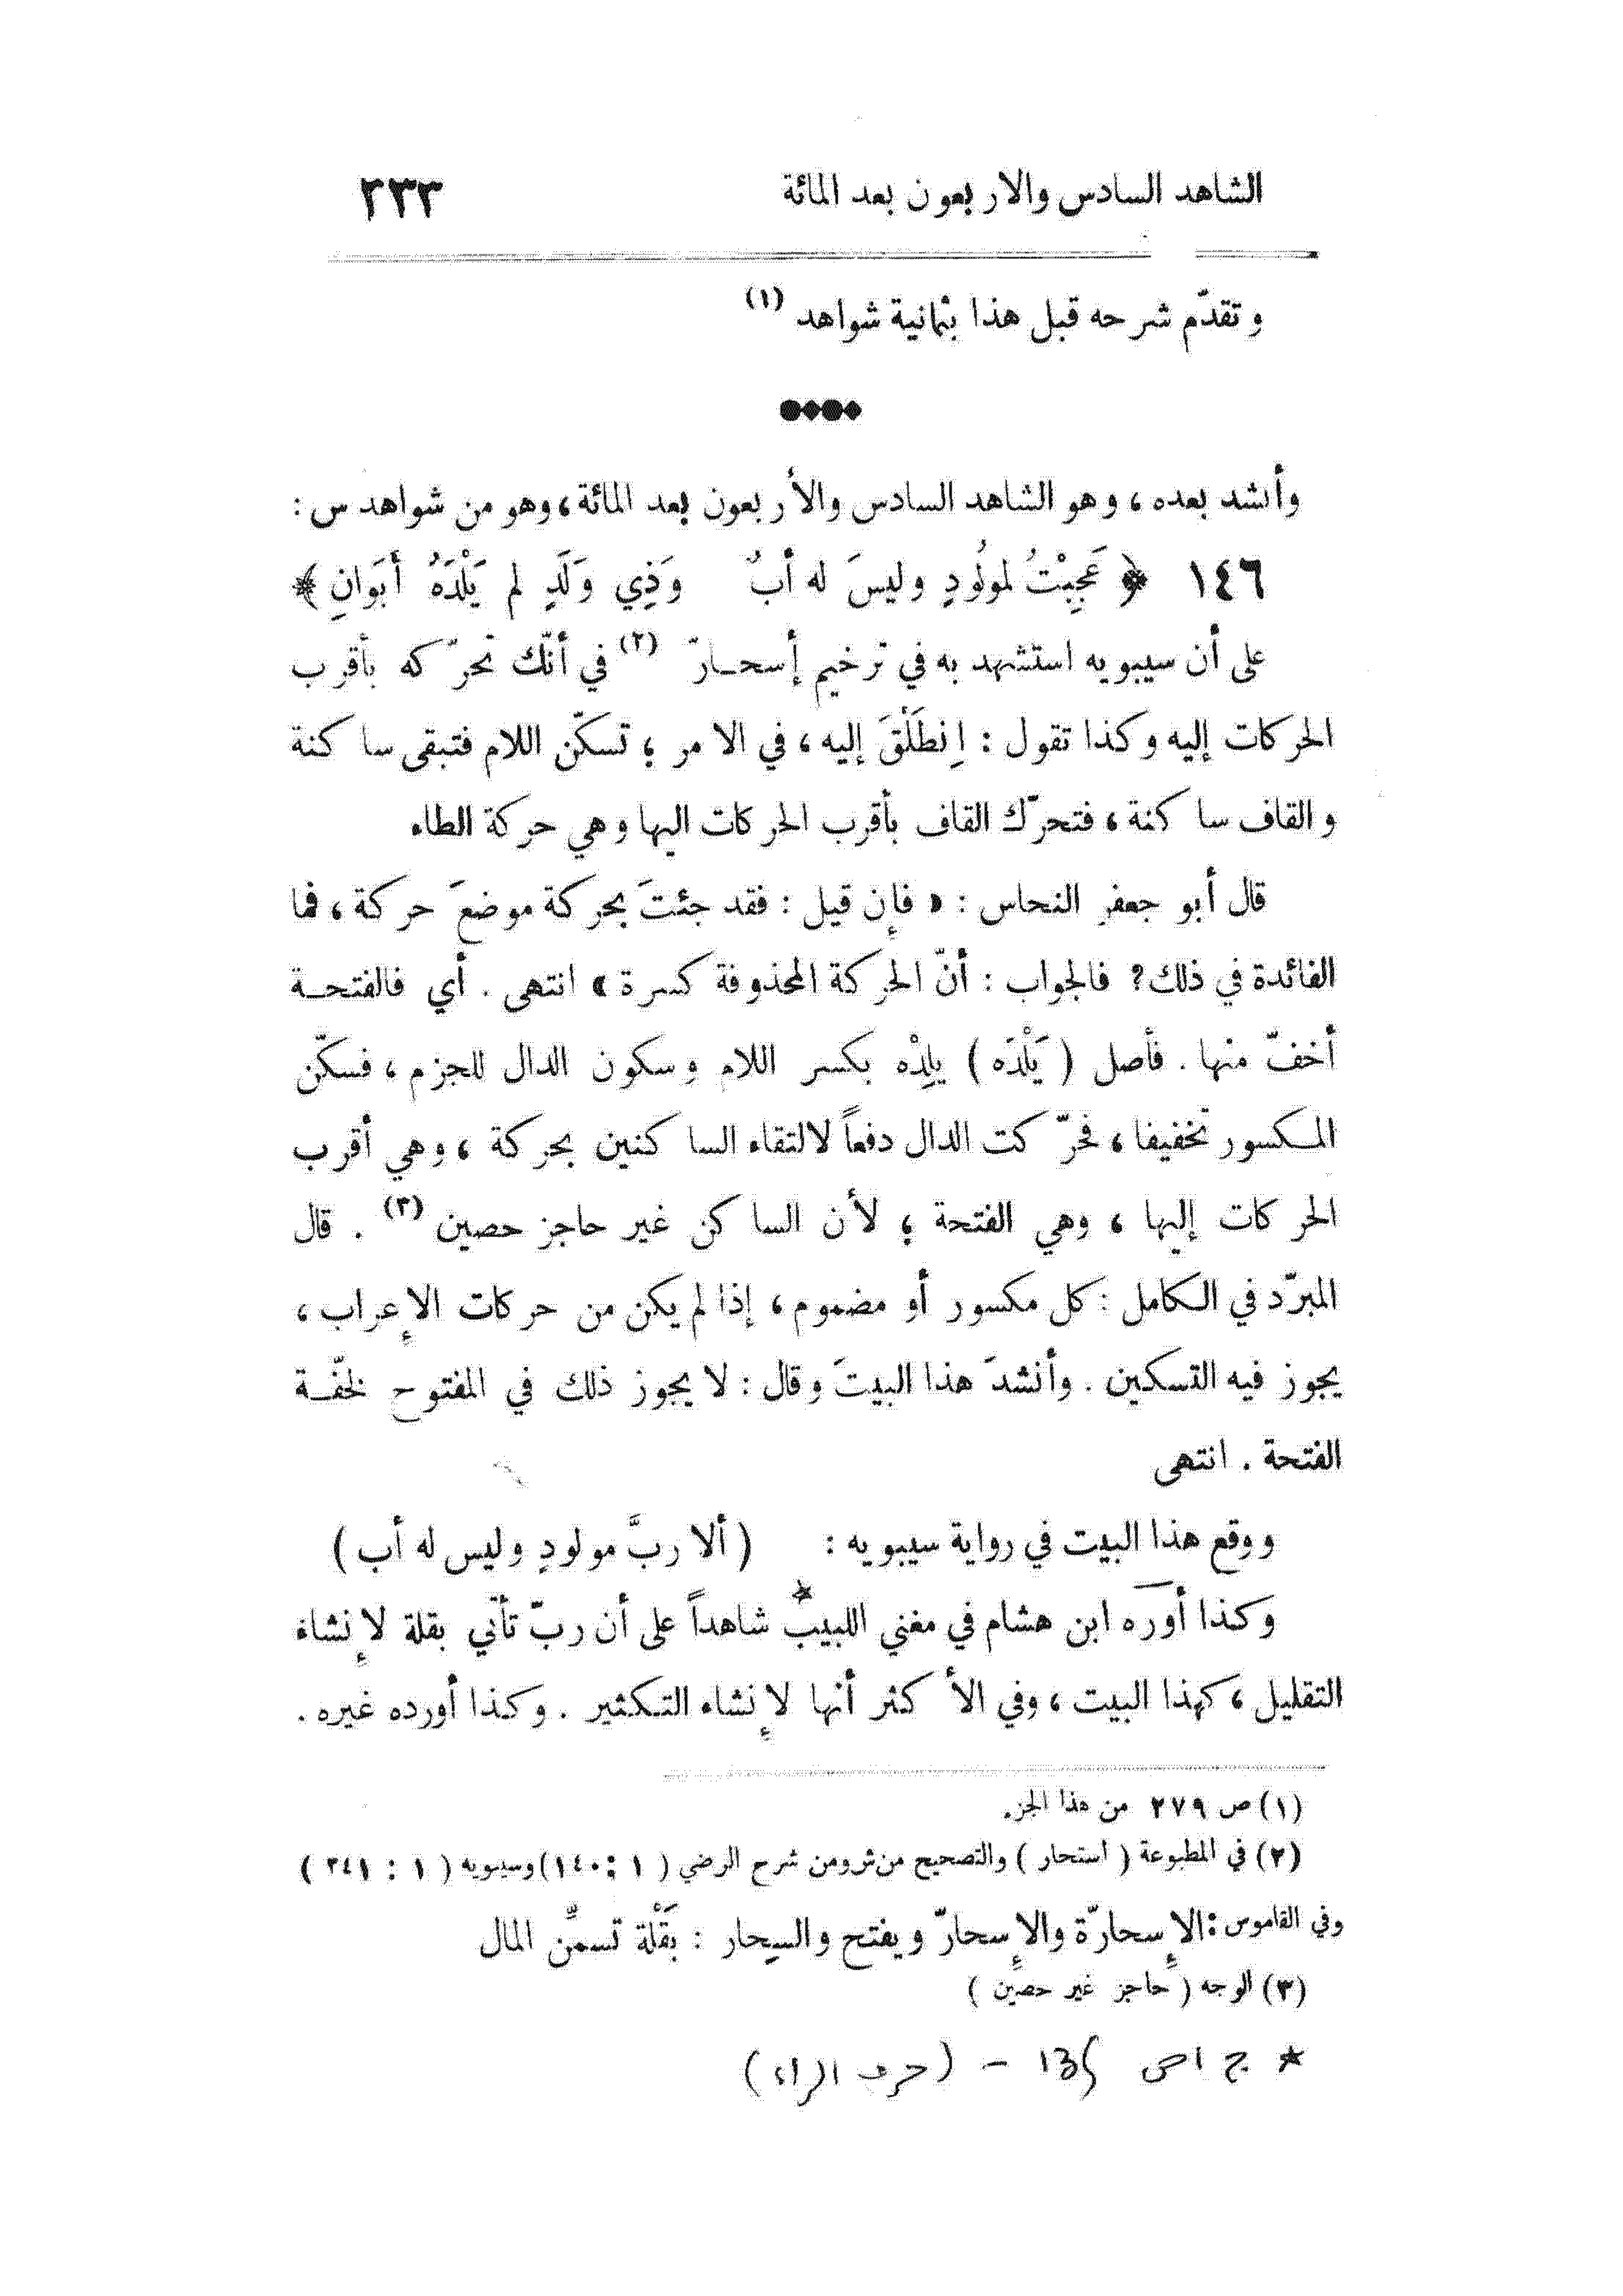 الشاهد السادس والاربعون بعد المائة ٣٣٣
وتقدّم شرحه قبل هذا بثمانية شواهد (١)
وأنشد بعده ، وهو الشاهد السادس والأربعون بعد المائة ، وهو من شواهد س :
١٤٦ ﴿ عَجِبْتُ لمولُودٍ وليسَ له أبٌ وَذِي وَلَدٍ لم يَلْدَهُ أَبَوَانِ ﴾
على أن سيبويه استشهد به في ترخيم إسحـارّ (٢) في أنّك تحرّكه بأقرب
الحركات إليه وكذا تقول : اِنطَلْقَ إليه ، في الامر ؛ تسكّن اللام فتبقى ساكنة
والقاف ساكنة ، فتحرّك القاف بأقرب الحركات اليها وهي حركة الطاء
قال أبو جعفر النحاس : « فإن قيل : فقد جئتَ بحركة موضعَ حركة ، فما
الفائدة في ذلك ؟ فالجواب : أنّ الحركة المحذوفة كسرة » انتهى . أي فالفتحـة
أخفّ منها . فأصل ( يَلْدَه ) يلِدْه بكسر اللام وسكون الدال للجزم ، فسكّن
المـكسور تخفيفا ، فحرّكت الدال دفعاً لالتقاء الساكنين بحركة ، وهي أقرب
الحركات إليها ، وهي الفتحة ؛ لأن الساكن غير حاجز حصين (٣) . قال
المبرّد في الـكامل : كل مكسور أو مضموم ، إذا لم يكن من حركات الإعراب ،
يجوز فيه التسكين . وأنشدَ هذا البيتَ وقال : لا يجوز ذلك في المفتوح لخفّـة
الفتحة . انتهى
ووقع هذا البيت في رواية سيبويه : ( ألا ربَّ مولودٍ وليس له أب )
وكذا أوره ابن هشام في مغني اللبيب * شاهداً على أن ربّ تأتي بقلة لإنشاء
التقليل ، كهذا البيت ، وفي الأكثر أنها لإنشاء التـكثير . وكذا أورده غيره .
(١) ص ٢٧٩ من هذا الجزء
(٢) في المطبوعة ( استحار ) والتصحيح من ش ومن شرح الرضي ( ١ : ١٤٠ ) وسيبويه ( ١ : ٣٤١ )
وفي القاموس : الإسحارّة والإسحارّ ويفتح والسِحار : بَقْلة تسمِّن المال
(٣) الوجه ( حاجز غير حصين )
* ج ١ ص ١٣٤ - ( حرف الراء )